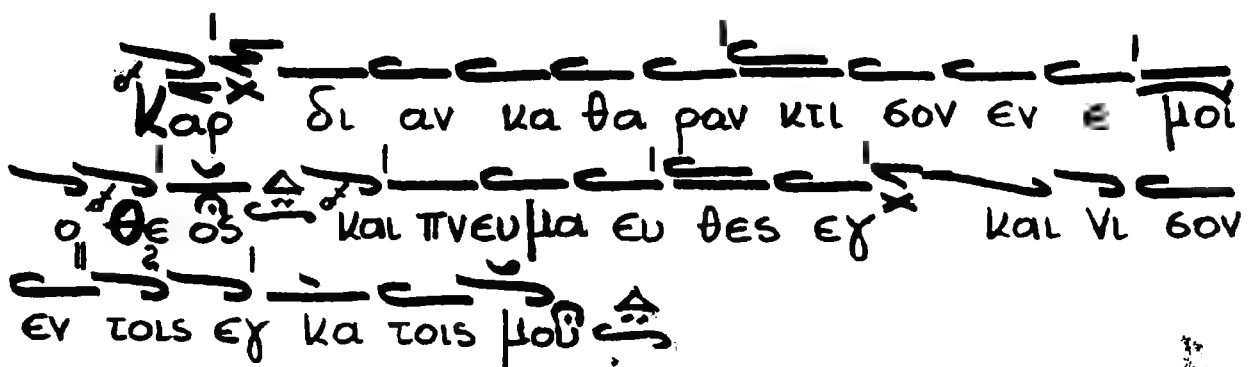 Καρ δι αν κα θα ραν κτι σον εν ε μοι
ο Θε ος και πνευ μα ευ θες εγ και νι σον
εν τοις εγ κα τοις μου